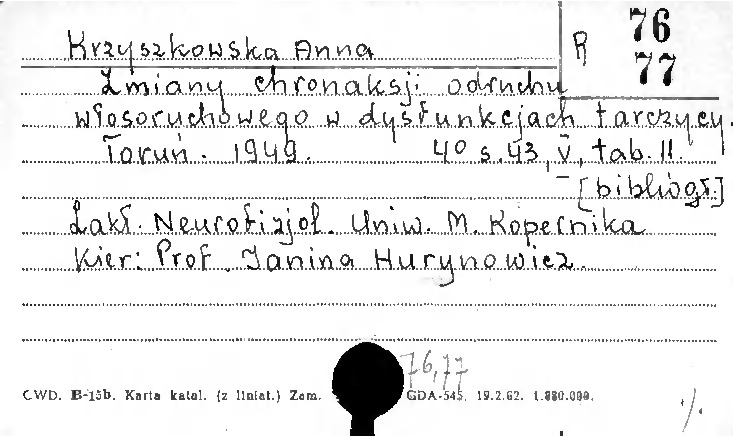 Krzyszkowska Anna
R 76
77
Zmiany chronaksji odruchu
włosoruchowego w dysfunkcjach tarczycy.
Toruń. 1949. 4° s. 43, V, tab. 11.
[bibliogr.]
Zakł. Neurofizjol. Uniw. M. Kopernika
Kier: Prof. Janina Hurynowicz.
76,77
CWD. B-15b. Karta katal. (z liniat.) Zam. GDA-545. 19.2.62. 1.880.000.